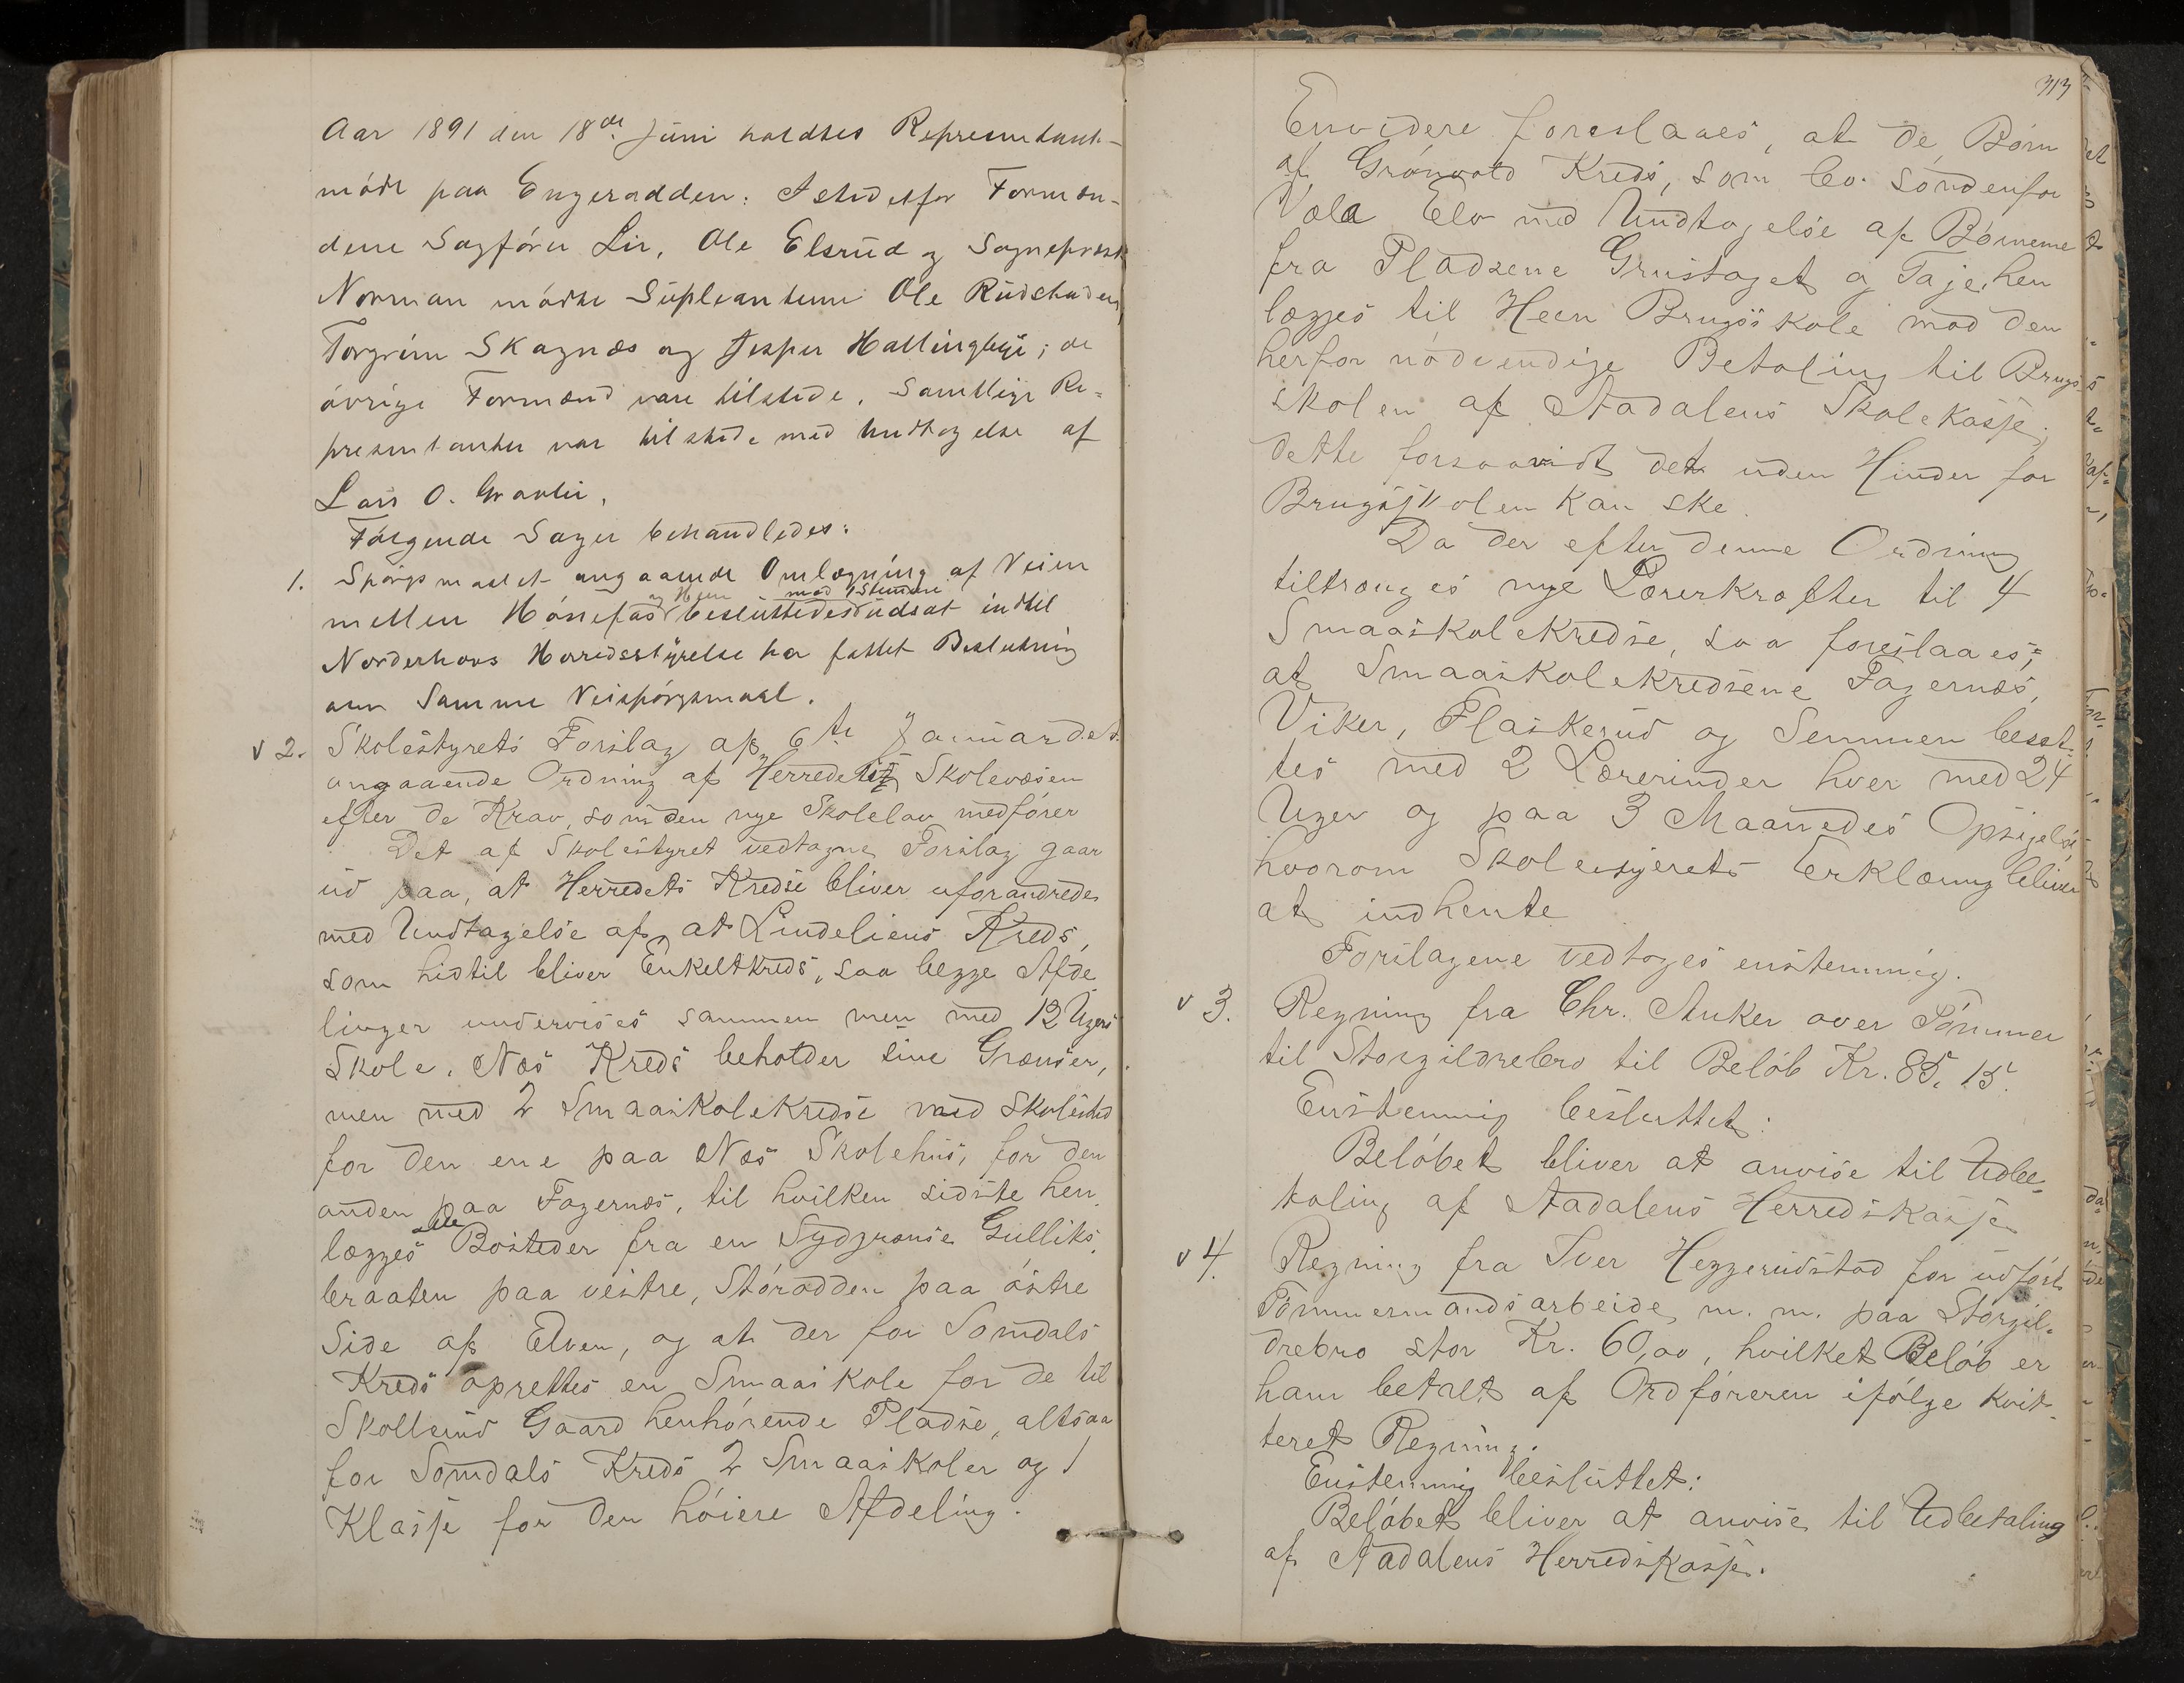 Aar 1891 den 18de Juni holdtes Representant-
møde paa Engeradden. Istedetfor Formæn-
dene Sagfører Lie, Ole Elsrud og Sogneprest
Norman mødte Supleanterne Ole Rudstaden,
Torgrim Skagnæs og Jesper Hallingbye; de
øvrige Formænd vare tilstede. Samtlige Re-
presentanter var tilstede med Undtagelse af
Lars O.
Følgende Sager behandledes:
1. Spørgsmaalet angaaende Omlægning af Veien
og Heen med 1 Stemme
mellem Hønefos besluttedes udsat indtil
Norderhovs Herredsstyrelse har fattet Beslutning
om samme Veispørgsmaal.
v 2. Skolestyrets Forslag af 6te Januar d.A.
angaaende Ordning af Herredets Skolevæsen
efter de Krav, som den nye Skolelov medfører
Det af Skolestyret vedtagne Forslag gaar
ud paa, at Herredets Kredse bliver uforandrede
med Undtagelse af, at Lindeliens Kreds,
som hidtil bliver Enkeltkreds, saa begge Afde-
linger undervises sammen men med 12 Ugers
Skole. Næs Kreds beholder sine Grænser,
men med 2 Smaaskolekredse med Skolested
for den ene paa Næs Skolehus, for den
anden paa Fagernæs, til hvilken sidste hen-
alle
lægges Bosteder fra en Sydgrænse Gulliks-
braaten paa vestre, Storodden paa østre
Side af Elven, og at der for Sømdals
Kreds oprettes en Smaaskole for de til
Skollerud Gaard henhørende Pladse, altsaa
for Sømdals Kreds 2 Smaaskoler og 1
Klasse for den høiere Afdeling.
313
Envidere foreslaaes, at de Børn
af Grønvold Kreds, som bo søndenfor
Væla Elv med Undtagelse af Børnene
fra Pladsene Grustaget og Taje, hen
lægges til Heen Brugsskole mod den
herfor nødvendige Betaling til Brugs-
skolen af Aadalens Skolekasse,
dette forsaavidt det uden Hinder for
Brugsskolen kan ske.
Da der efter denne Ordning
tiltrænges nye Lærerkræfter til 4
Smaaskolekredse, saa foreslaaes,
at Smaaskolekredsene Fagernæs,
Viker, Flaskerud og Semmen besæt-
tes med 2 Lærerinder hver med 24
Uger og paa 3 Maaneders Opsigelse
hvorom Skolestyrets Erklæring bliver
at indhente
Forslagene vedtoges enstemmig.
v 3. Regning fra Chr. Anker over Tømmer
til Storgildrebro til Beløb Kr. 85,15.
Enstemmig besluttet:
Beløbet bliver at anvise til Udbe-
taling af Aadalens Herredskasse
v 4. Regning fra Iver Heggerudstad for udført
Tømmermandsarbeide m. m. paa Storgil-
drebro stor Kr. 60,00, hvilket Beløb er
ham betalt af Ordføreren ifølge kvit-
teret Regning.
Enstemmig besluttet:
Beløbet bliver at anvise til Udbetaling
af Aadalens Herredskasse.